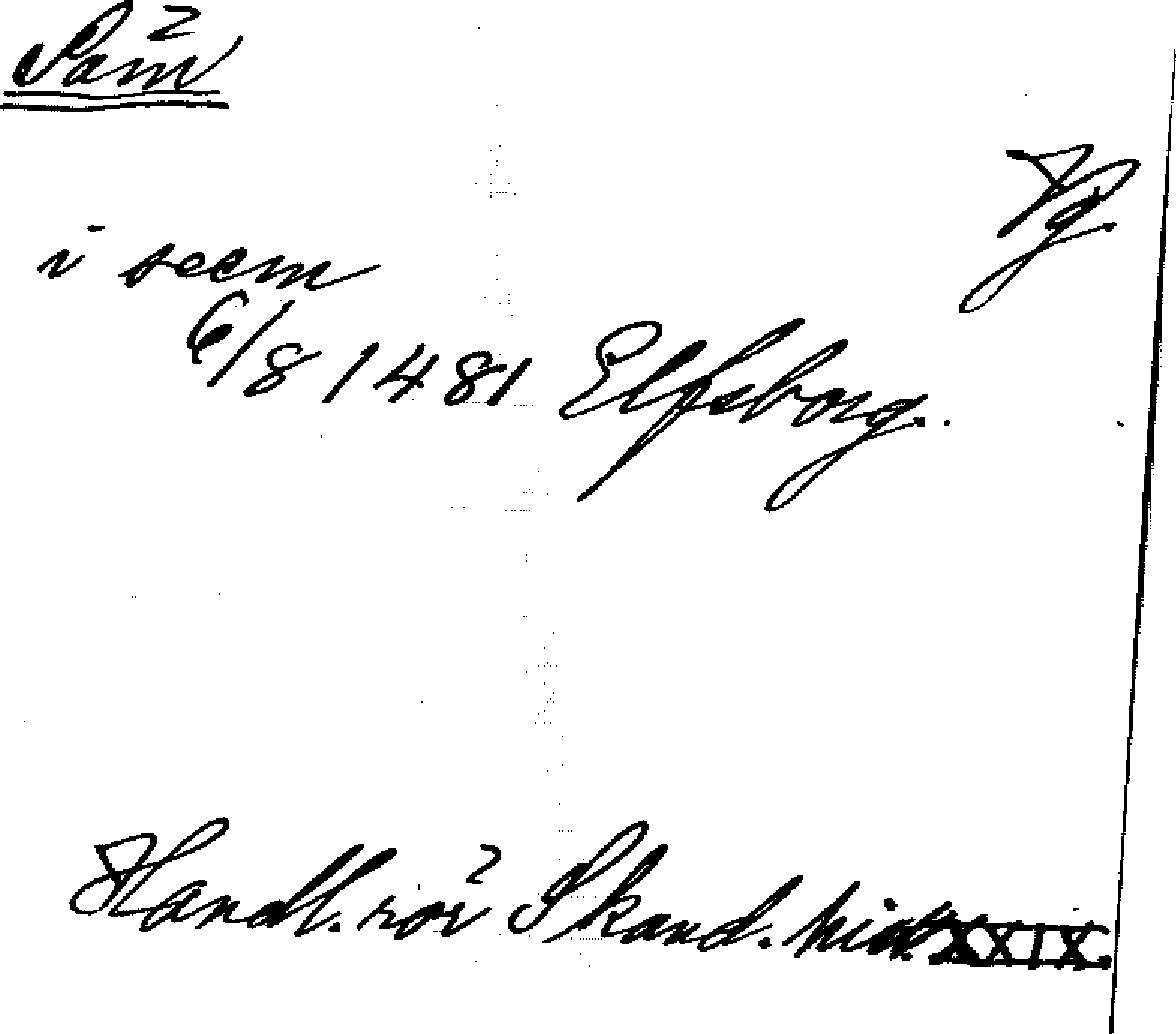 Säm
Vg.
i seem
6/8 1481 Elfsborg.
Handl. rör Skand. hist. XXIX.